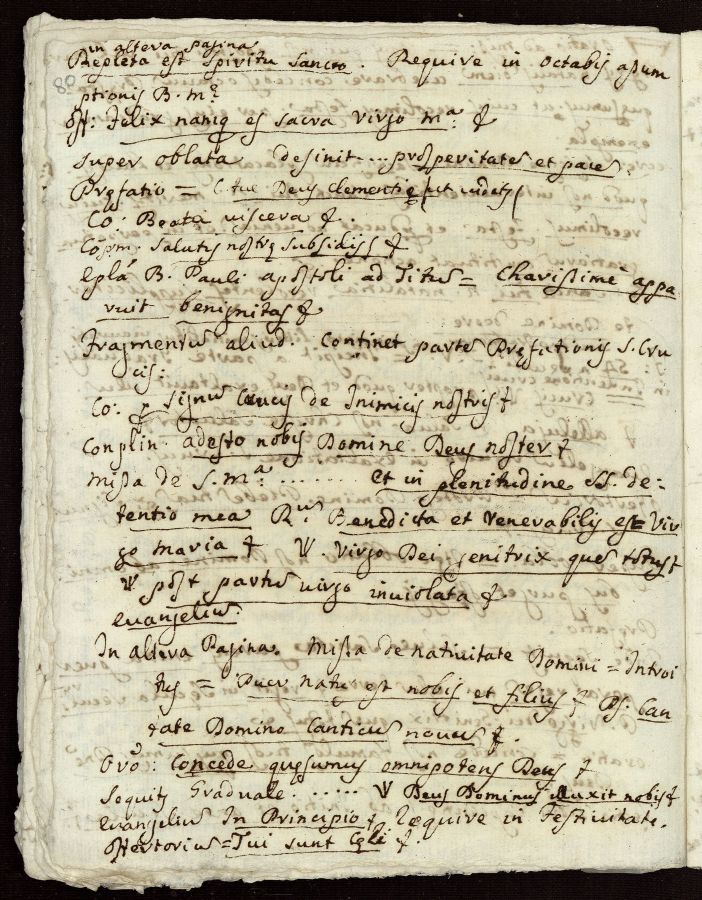 in altera pagina
Repleta est Spiritu Sancto. Require in octabis asum
80
ptionis B. M.ę
Off: Felix namq es sacra virgo M.a &
super oblata desinit ... prosperitate et pace.
Prefatio = Clementię
Co: Beata viscera &.
Copm: salutis nostrę subsidiis &
Epla B. Pauli apostoli ad Titu = Charissime appa
ruit benignitas &
Fragmentu aliud. Continet parte Pręfationis S. Cru
cis:
Co: p signu Crucis de Inimicis nostris &
Conplin adesto nobis Domine Deus noster &
Missa de S. Ma. ........ et in plenitudine SS. de:
tentio mea R.us Benedicta et Venerabilis es = Vir
go Maria & V. Virgo Dei Genitrix que totus &
V post partu virgo inviolata &
evangeliu:
In altera Pagina. Missa de nativitate Domini = Introi
tus = Puer natu est nobis et filius & Ps: Can
tate Domino Canticu novu &.
Oro: Concede quęsumus omnipotens Deus &
Sequit Graduale ...... V Deus Dominus eluxit nobis &
evangeliu In Principio & Require in Festivitate.
Offertoriu = Tui sunt Cęli &.